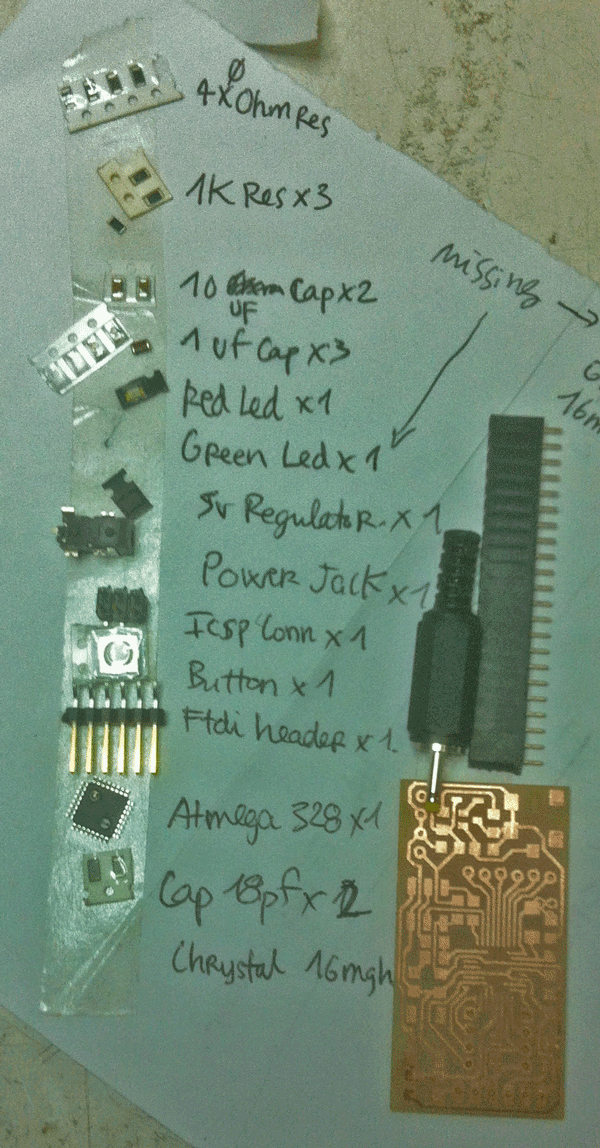 4x0 Ohm Res
1K Res x3
10 Cap x2
UF
1 uf Cap x3
Red Led x1
missing
16m
Green Led x1
5v Regulator x1
Power Jack x1
Icsp Conn x1
Button x1
Ftdi header x1
Atmega 328 x1
Cap 18pf x 2
Chrystal 16mgh